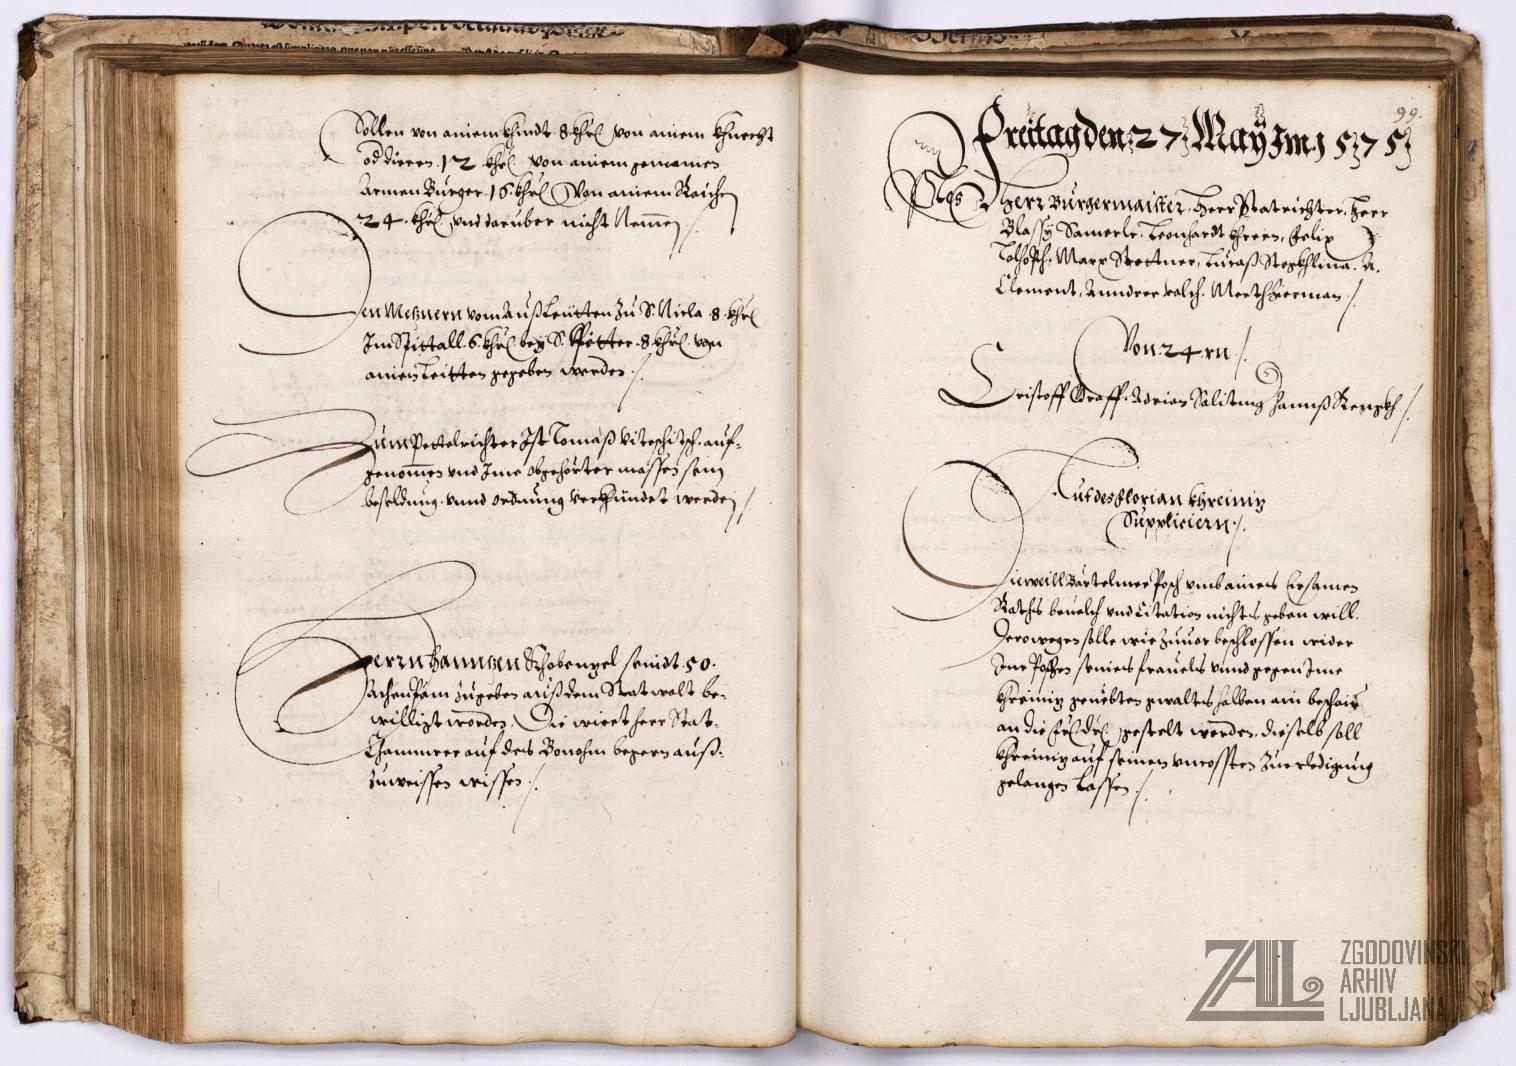 Sollen von ainem Khindt 8 khr. von ainem Khnecht
od dieren 12 khr. von ainem gemainen
Armen Burger 16 khr. Von ainem Raichen
24 khr. und darüber nicht Nemen
Den Mesznern vom Auszleütten zu S. Nicla 8 khr.
Im Spittall 6 khr. bey S. Pitter 8 khr. von
ainem Leitten gegeben werden
Zum Pettelrichter Ist Tomasz Viteschitsch auf-
genomen und Ime obgehörter massen sein
besoldung unnd ordnung verkhündet werden
Herrn Hannszen seindt 50
zugeben ausz dem Statwalt be-
williget worden, Die wiert herr Stat-
Chamrer auf des begern ausz-
zuweissen wissen
99.
Freitag den 27 May Im 1575
Herr Burgermaister, Herr Statrichter, Herr
Blassy Samerle, Leonhardt Khren, Felix
Marx Stettner, Lucasz Stegkhlina, A.
Clement, Anndree Falch, Mert
Von 24rn
Cristoff Graff, Adrian Saliting Hannsz
Auf des Florian Khreiniz
Suppliciern
Dieweill Bartelmee Posch umb aines Ersamen
Raths beuelch und Citation nichts geben will
Derowegen solle wie zuuor beschlossen wider
Ine Poschen seines frauels unnd gegen Ime
Khreiniz geuebten gwalts halben ain beschaid
an die gestelt werden, dieselb soll
Khreiniz auf seinen uncossten zuerledigung
gelangen Lassen
ZAL
ZGODOVINSKI
ARHIV
LJUBLJANA